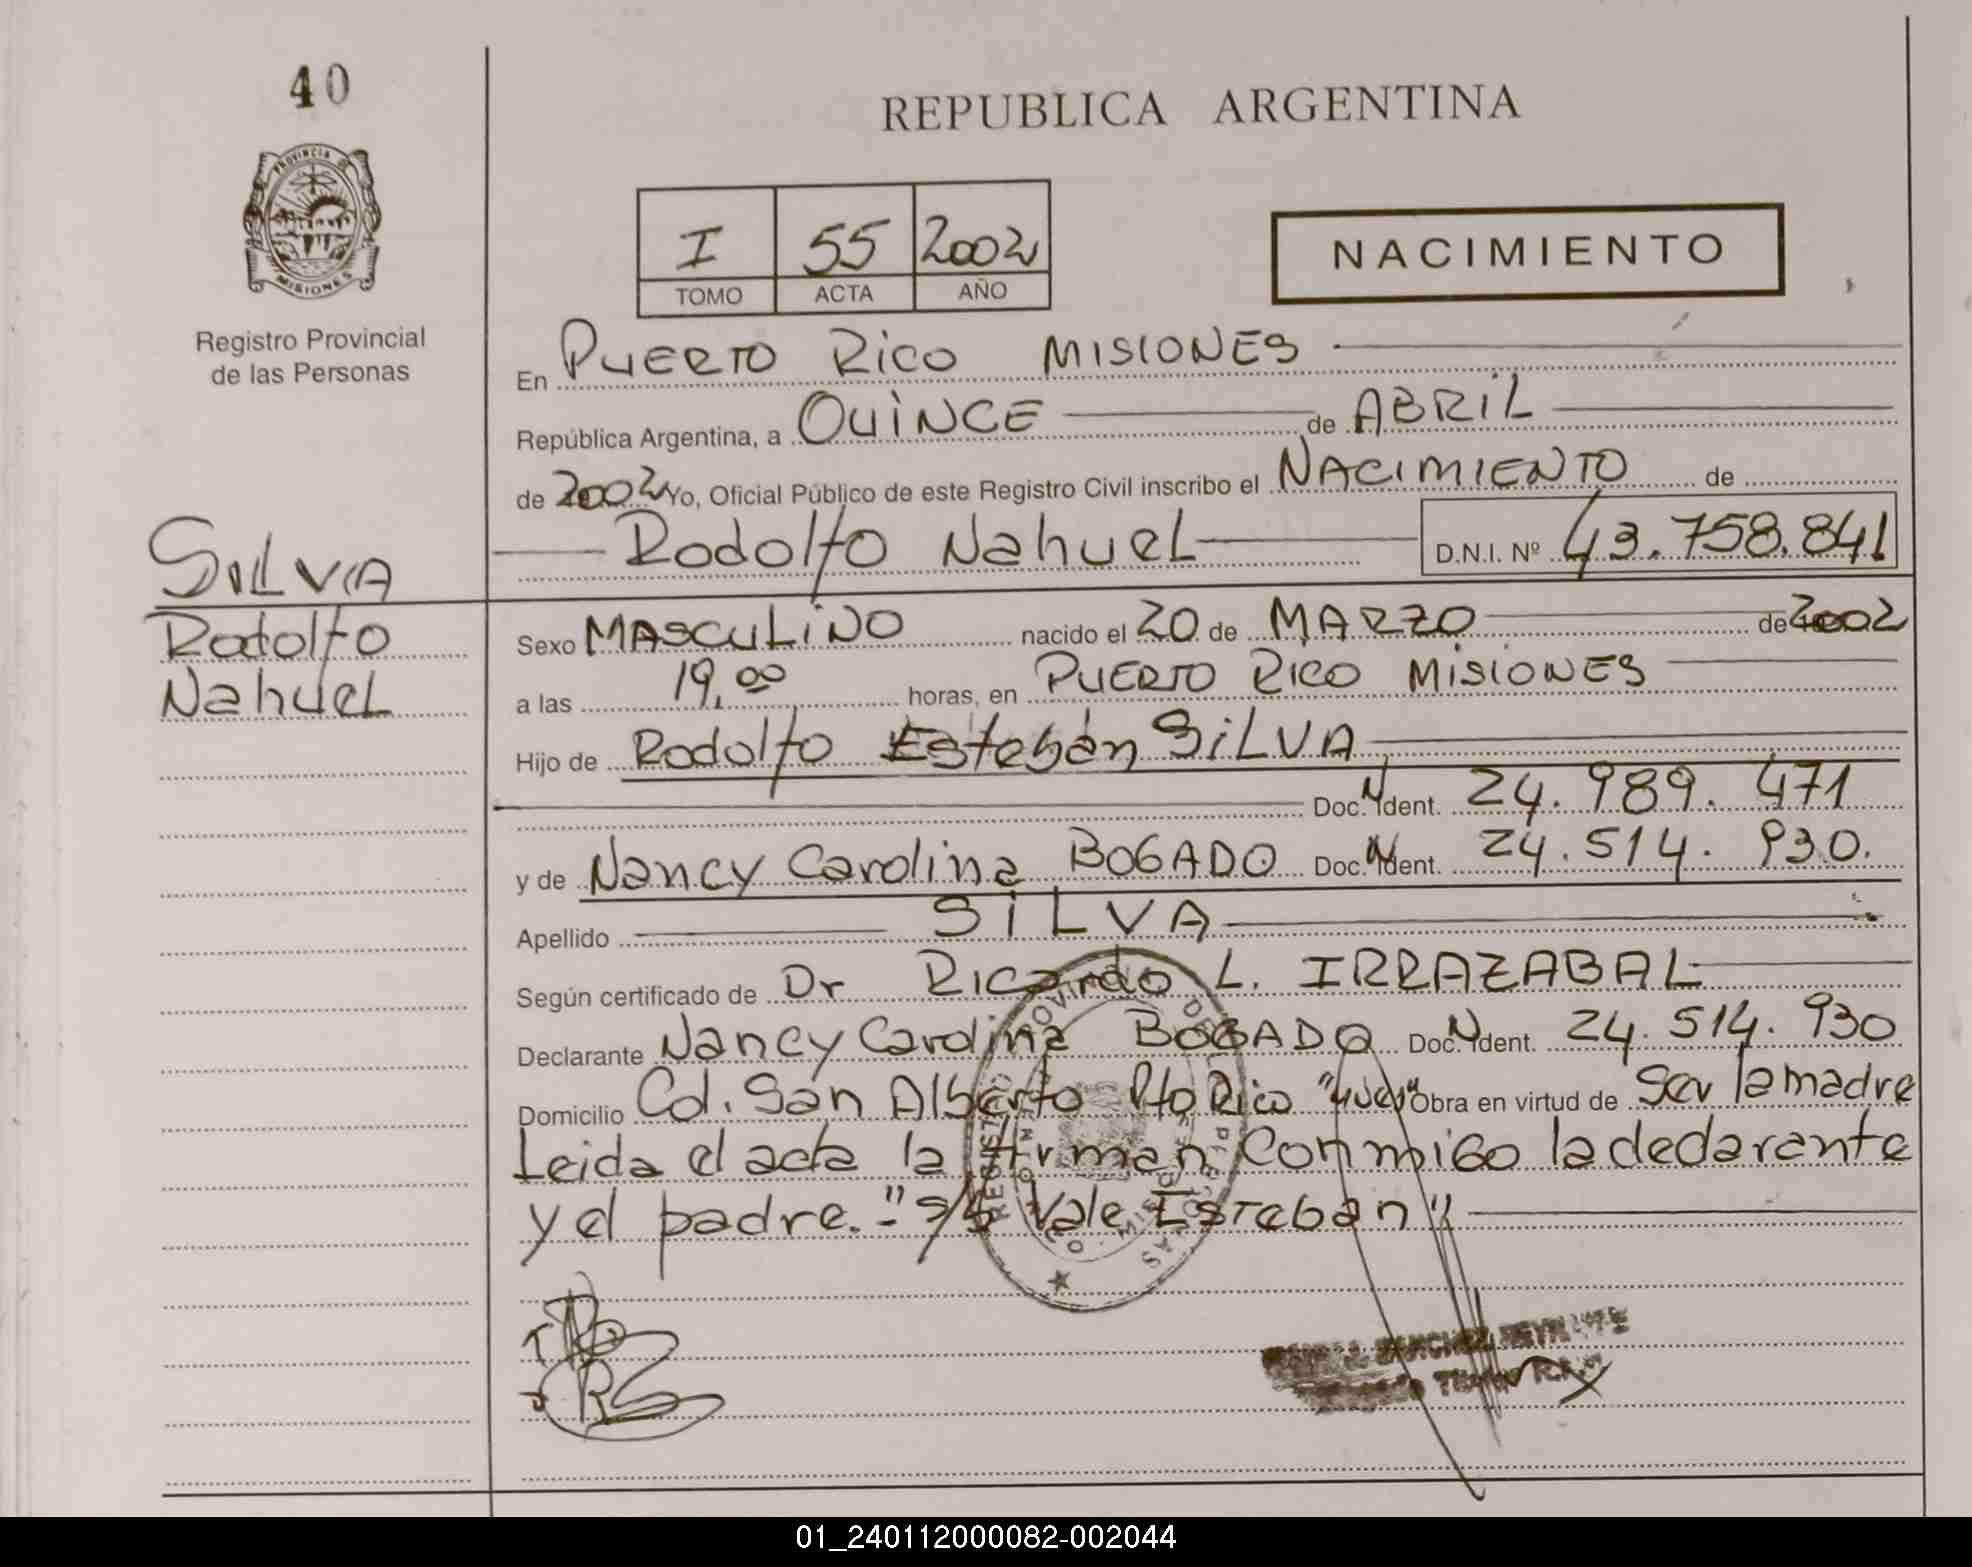 40
PROVINCIA DE
MISIONES
Registro Provincial
de las Personas
SILVA
Rodolfo
Nahuel
REPUBLICA ARGENTINA
I 55 2002
TOMO ACTA AÑO
NACIMIENTO
En PUERTO RICO MISIONES
República Argentina, a QUINCE de ABRIL
de 2002 Yo, Oficial Público de este Registro Civil inscribo el NACIMIENTO de
Rodolfo Nahuel D.N.I. Nº 43.758.841
Sexo MASCULINO nacido el 20 de MARZO de 2002
a las 19,00 horas, en PUERTO RICO MISIONES
Hijo de Rodolfo Esteban SILVA
Doc. Ident. 24.989.471
y de Nancy Carolina BOGADO Doc. Ident. 24.514.930.
Apellido SILVA
Según certificado de Dr Ricardo L. IRRAZABAL
Declarante Nancy Carolina BOGADO Doc. Ident. 24.514.930
Domicilio Col. San Alberto Pto Rico Obra en virtud de Ser la madre
Leida el acta la firman Conmigo la declarante
y el padre.-"S/b Vale Esteban"
01_240112000082-002044